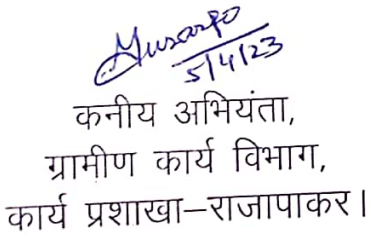 5/4/23
कनीय अभियंता,
ग्रामीण कार्य विभाग,
कार्य प्रशाखा–राजापाकर।